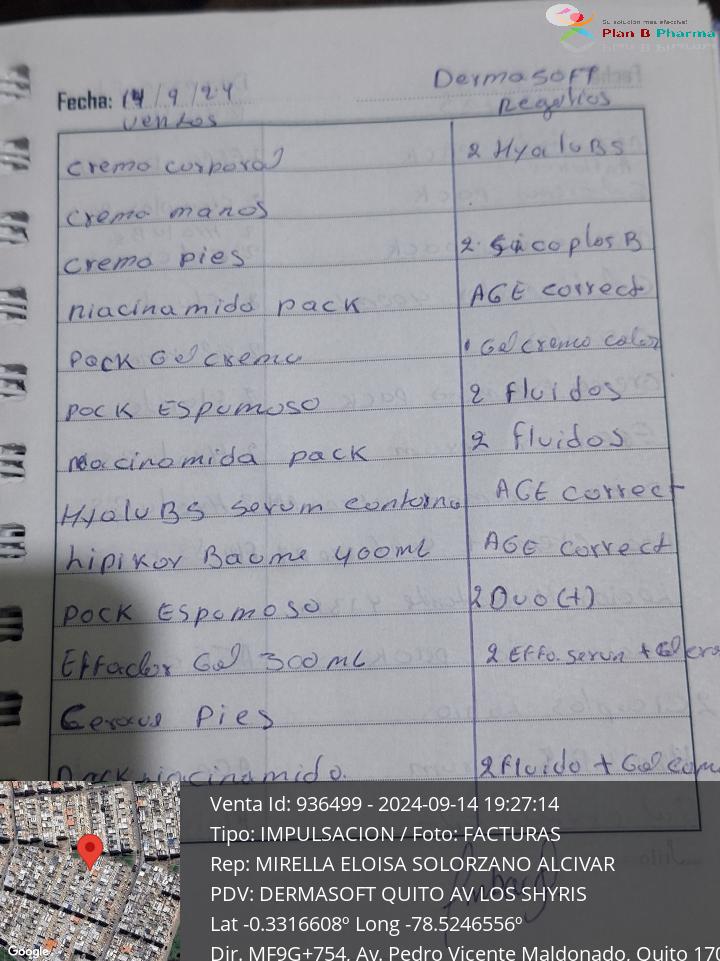 Su solución más efectiva!
Plan B Pharma
Dermasoft
Fecha: 14/9/24
ventas regalios
cremo corporal 2 Hyalu B5
cremo manos
cremo pies 2 Sicoplos B
niacinamida pack AGE correct
Pack Gel crema 1 Gel cremo color
pack Espumoso 2 fluidos
niacinamida pack 2 fluidos
Hyalu B5 serum contorno AGE correct
lipikar Baume 400ml AGE correct
pack Espumoso 2 Duo (+)
Effaclar Gel 300 mL 2 Effa. serun +
Cerave Pies
Pack niacinamida. 2 fluido + Gel
Venta Id: 936499 - 2024-09-14 19:27:14
Tipo: IMPULSACION / Foto: FACTURAS
Rep: MIRELLA ELOISA SOLORZANO ALCIVAR
PDV: DERMASOFT QUITO AV LOS SHYRIS
Lat -0.3316608º Long -78.5246556º
Dir. MF9G+754, Av. Pedro Vicente Maldonado, Quito 170
Google